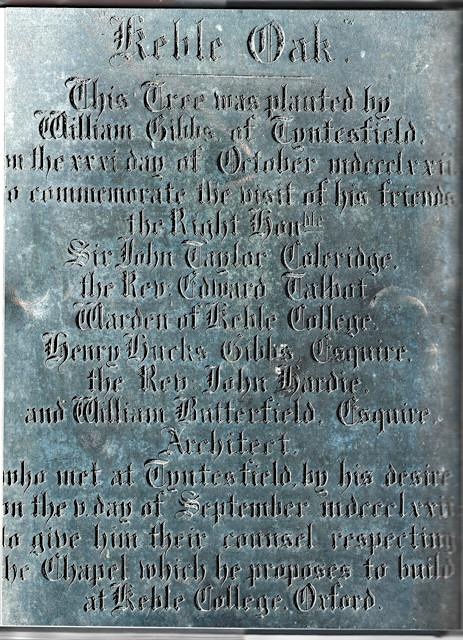 Keble Oak.
This Tree was planted by
William Gibbs of Tyntesfield.
on the xxxi day of October mdccclxxii
to commemorate the visit of his friends
the Right Honble
Sir John Taylor Coleridge.
the Rev. Edward Talbot
Warden of Keble College.
Henry Hucks Gibbs Esquire.
the Rev. John Hardie.
and William Butterfield. Esquire.
Architect.
who met at Tyntesfield, by his desire
on the v day of September mdccclxxii
to give him their counsel respecting
the Chapel which he proposes to build
at Keble College. Oxford.